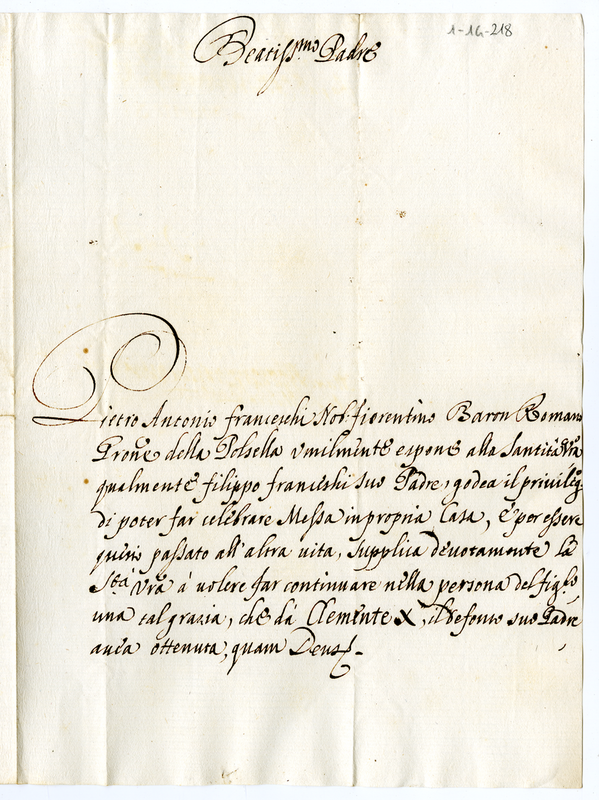 1-16-218
Beatiss.mo Padre
Pietro Antonio franceschi Nob: fiorentino Baron Romano
Prone della Polsella umilmente espone alla Santità Vra
qualmente filippo franceschi suo Padre, godea il privileg
di poter far celebrare Messa in propria Casa, è per essere
questo passato all'altra vita, supplica devotamente la
S.tà Vra à volere far continuare nella persona del figlio,
una tal grazia, che dà Clemente X, il defonto suo Padre
avea ottenuta, quam Deus